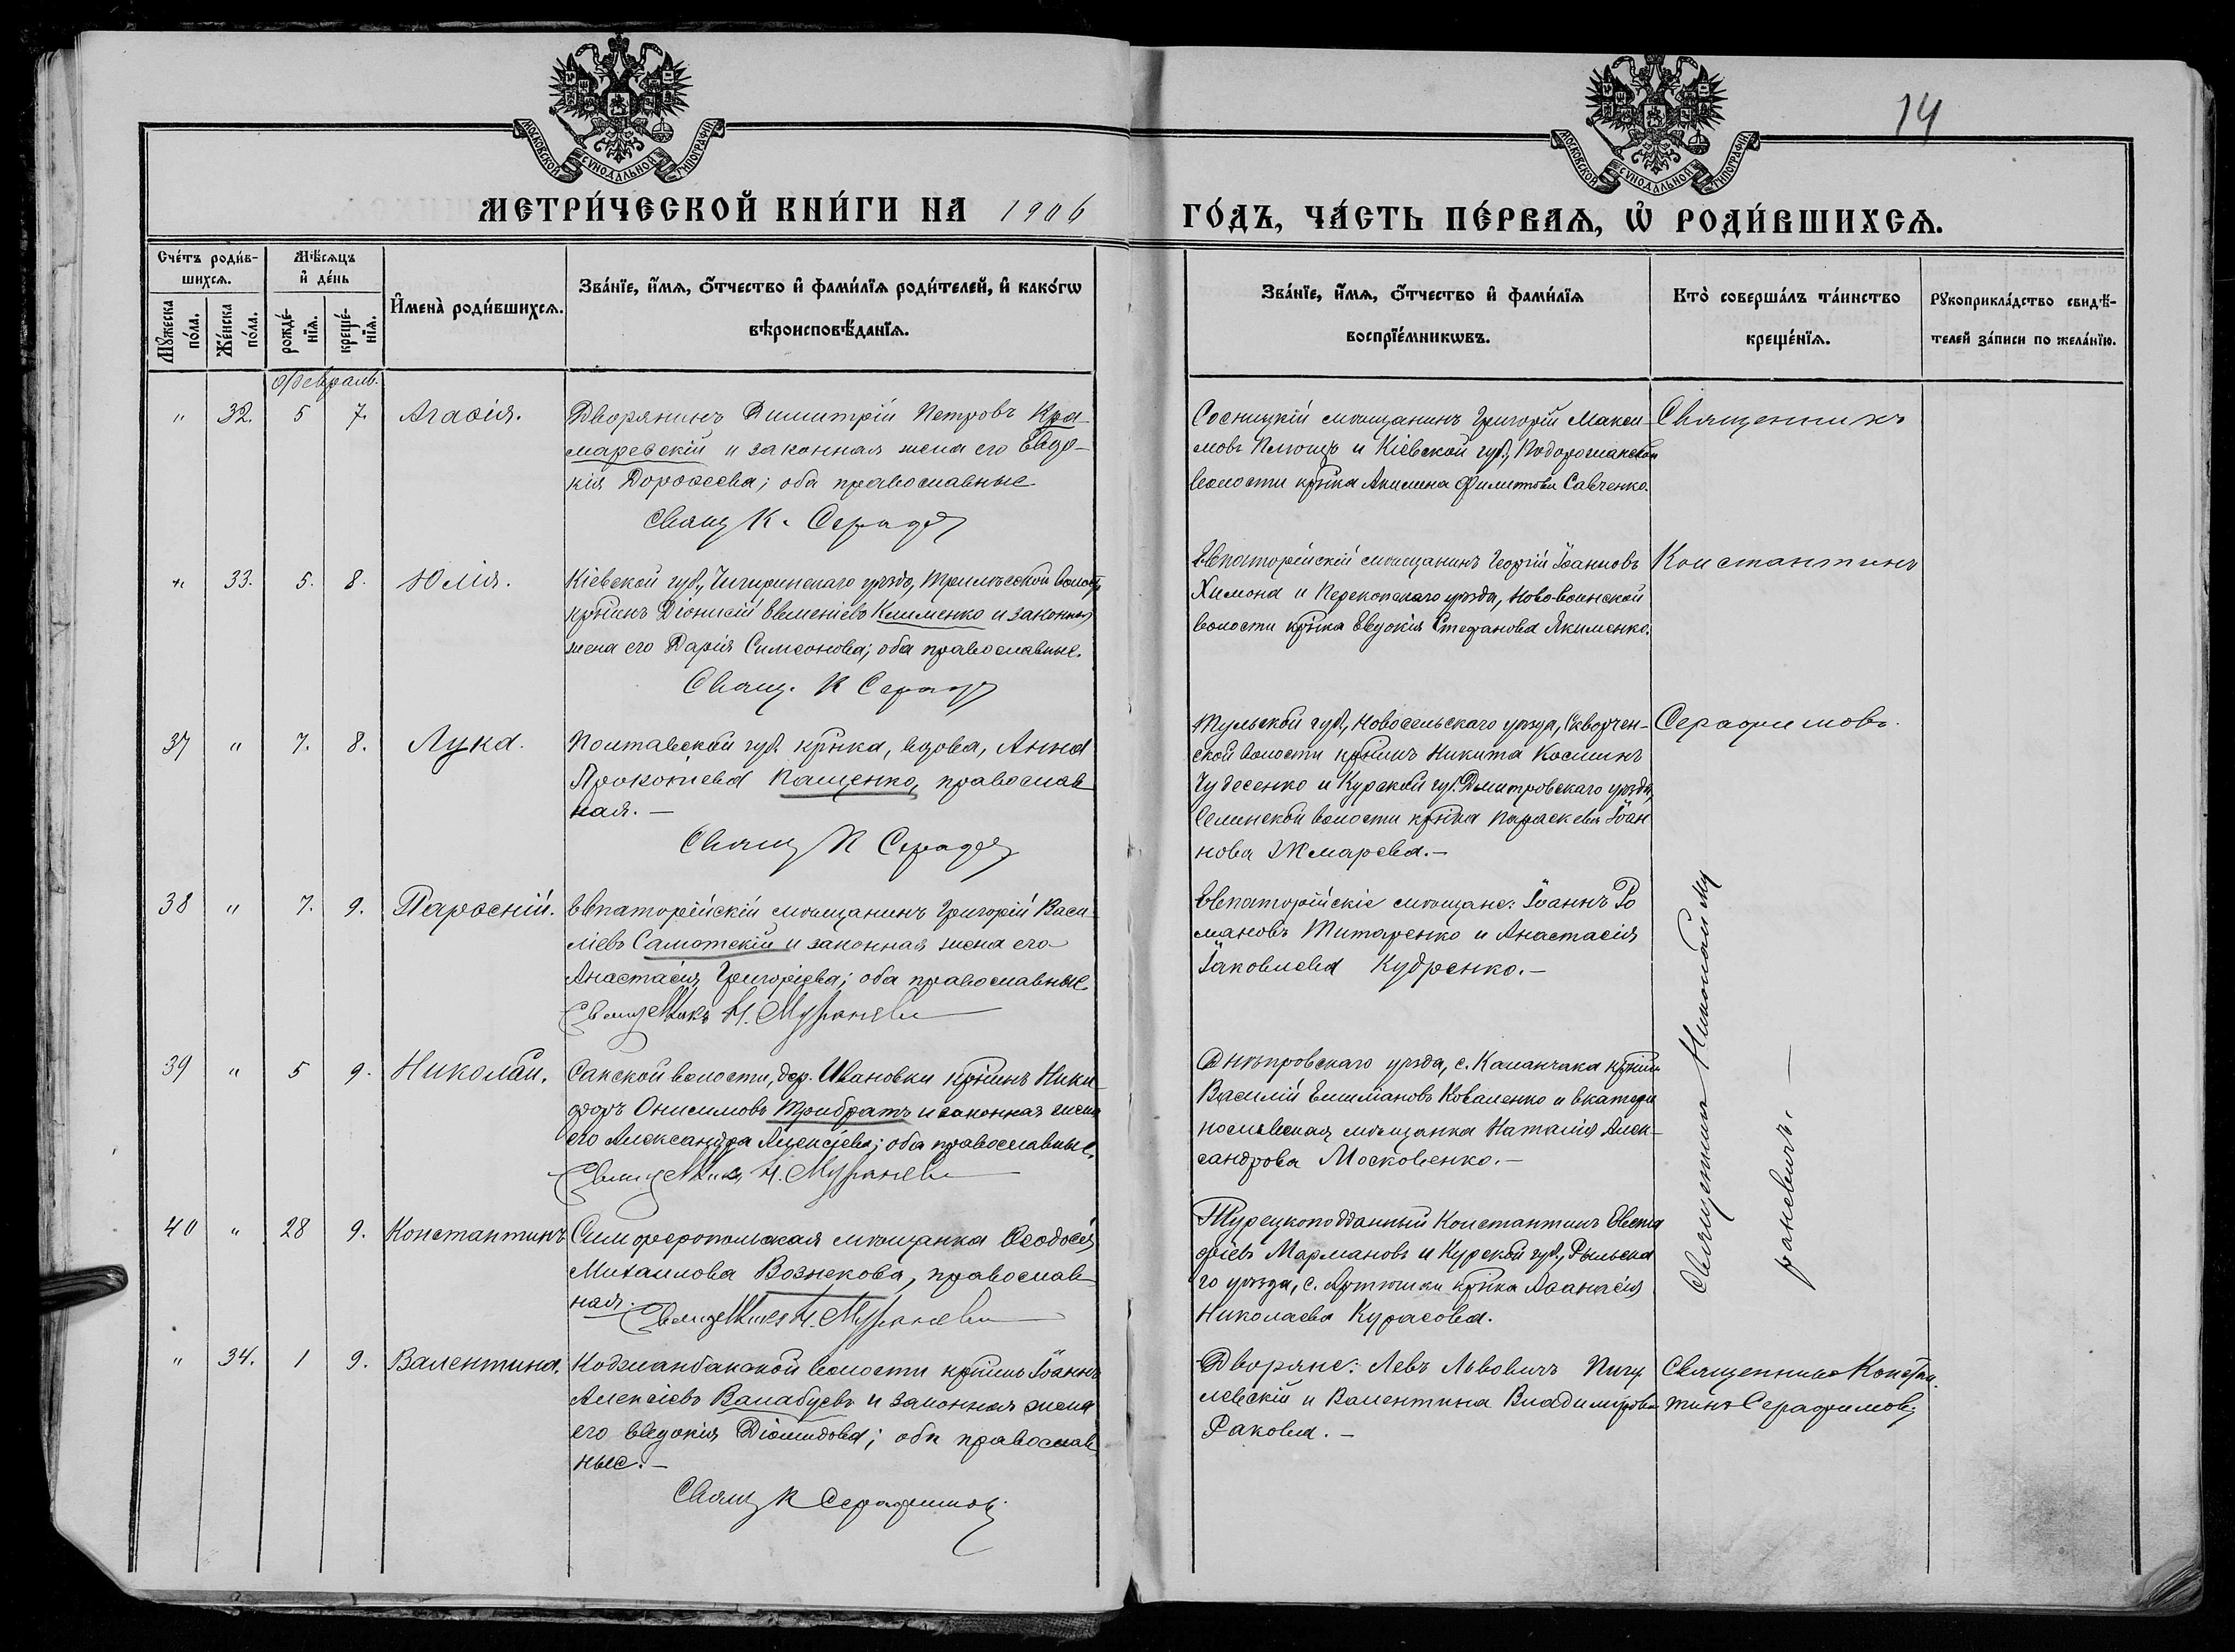 МОСКОВСКОЙ СѴНОДАЛЬНОЙ ТИПОГРАФІИ
МОСКОВСКОЙ СѴНОДАЛЬНОЙ ТИПОГРАФІИ
14
МЕТРИ́ЧЕСКОЙ КНИ́ГИ НА 1906
ГО́ДЪ, ЧА́СТЬ ПЕ́РВАѦ, Ѽ РОДИ́ВШИХСѦ.
Сче́тъ роди́в-
шихсѧ.
Мꙋ́жеска по́ла.
Же́нска по́ла.
Мѣ́сѧцъ
и҆ де́нь
рожде́-
нїѧ.
креще́-
нїѧ.
И҆мена̀ роди́вшихсѧ.
Зва́нїе, и҆́мѧ, ѻ҆́тчество и҆ фами́лїѧ роди́телей, и҆ како́гѡ
вѣроисповѣ́данїѧ.
Зва́нїе, и҆́мѧ, ѻ҆́тчество и҆ фами́лїѧ
воспрїе́мникѡвъ.
Кто̀ соверша́лъ та́инство
креще́нїѧ.
Рꙋкоприкла́дство свидѣ́-
телей за́писи по жела́нїю.
Февраль.
" 32. 5 7. Агаѳія.
Дворянинъ Димитрій Петровъ Кра-
маревскій и законная жена его Евдо-
кія Дороѳеева; оба православные
Свящ К. Сераф
Сосницкій мѣщанинъ Григорій Макси-
мовъ Плющъ и Кіевской губ.,
волости кр҃нка Акилина Филиппова Савченко.
Священникъ
" 33. 5. 8. Юлія.
Кіевской губ., Чигиринскаго уѣзда, Трилѣсской волости
кр҃нинъ Діонисій Евменіевъ Клименко и законная
жена его Дарія Симеонова; оба православные.
Свящ. К Сераф
Евпаторійскій мѣщанинъ Георгій Іоанновъ
Химона и Перекопскаго уѣзда, Ново
волости кр҃нка Евдокія Стефанова Якименко.
Константинъ
37 " 7. 8. Лука.
Полтавской губ. кр҃нка, вдова, Анна
Прокопіева Пащенко, православ
ная. —
Свящ К Сераф
Тульской губ., Новосельскаго уѣзда, Скворчен-
ской волости кр҃нинъ Никита Косминъ
Чудесенко и Курской губ. Дмитровскаго уѣзда,
Селинской волости кр҃нка Параскева Іоан
нова Жмарева. —
Серафимовъ.
38 " 7. 9. Парѳеній.
Евпаторійскій мѣщанинъ Григорій Васи-
ліевъ Самотскій и законная жена его
Анастасія Григоріева; оба православные.
Священникъ Н. Мураневи
Евпаторійскіе мѣщане: Іоаннъ Ро
мановъ Титаренко и Анастасія
Іаковлева Кудренко. —
39 " 5 9. Николай.
Сакской волости, дер. Ивановки кр҃нинъ Ники-
форъ Онисимовъ Трибратъ и законная жена
его Александра Алексіева; оба православные.
Священникъ Н. Мураневи
Днѣпровскаго уѣзда, с. Каланчака кр҃нинъ
Василій Коваленко и Екатери
нославская мѣщанка Наталія Алек-
сандрова Московенко. —
Священникъ Николай Му
раневичъ. —
40 " 28 9. Константинъ
Симферопольская мѣщанка Ѳеодосія
Михаилова Вознекова, православ-
ная. Священникъ Н. Мураневи
Турецкоподданный Константинъ Евста
фіевъ Мармановъ и Курской губ., Рыльска
го уѣзда, с. Артюшки кр҃нка Аѳанасія
Николаева Курасова.
" 34. 1 9. Валентина.
Коджанбакской волости кр҃нинъ Іоаннъ
Алексіевъ Валабуевъ и законная жена
его Евдокія Діомидова; оба православ
ные. —
Свящ К Серафимовъ
Дворяне: Левъ Львовичъ
левскій и Валентина Владимірова
Ракова. —
Священникъ Констан
тинъ Серафимовъ